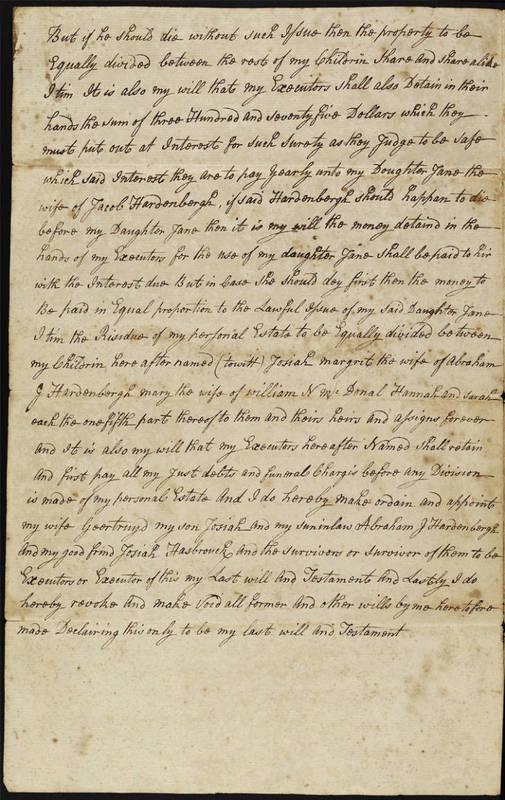 But if he should die without such Issue then the property to be
Equally divided between the rest of my Childrin Share and Share alike
I tim It is also my will that my Executors Shall also Detain in their
hands the sum of three Hundred and seventy five Dollars which they
must put out at Interest for such surety as they Judge to be safe
which said Interest they are to pay Yearly unto my Doughter Jane the
wife of Jacob Hardenbergh, if said Hardenbergh should happan to die
before my Daughter Jane then it is my will the money detaind in the
hands of my Executors for the use of my daughter Jane Shall be paid to hir
with the Interest due But in Case She Should dey first then the money to
Be paid in Equal proportion to the Lawful Issue of my said Daughter Jane
I tim the Risidue of my personal Estate to be Equally divided between
my Childrin here after named (towitt) Josiah margrit the wife of Abraham
J Hardenbergh mary the wife of william N Mc Donal Hannah and Sarah
each the one fifth part thereof to them and theirs heirs and assigns forever
and It is also my will that my Executors hereafter Named Shall retain
And first pay all my Just debts and funeral Chargis before any Division
is made of my personal Estate And I do hereby make ordain and appoint
my wife Geertruyd my son Josiah and my suninlaw Abraham J Hardenbergh
And my good frind Josiah Hasbrouck and the survivors or survivor of them to be
Executors or Executor of this my Last will And Testament And Lastly I do
hereby revoke and make Void all former And other wills by me heretofore
made Declairing this only to be my last will and Testament